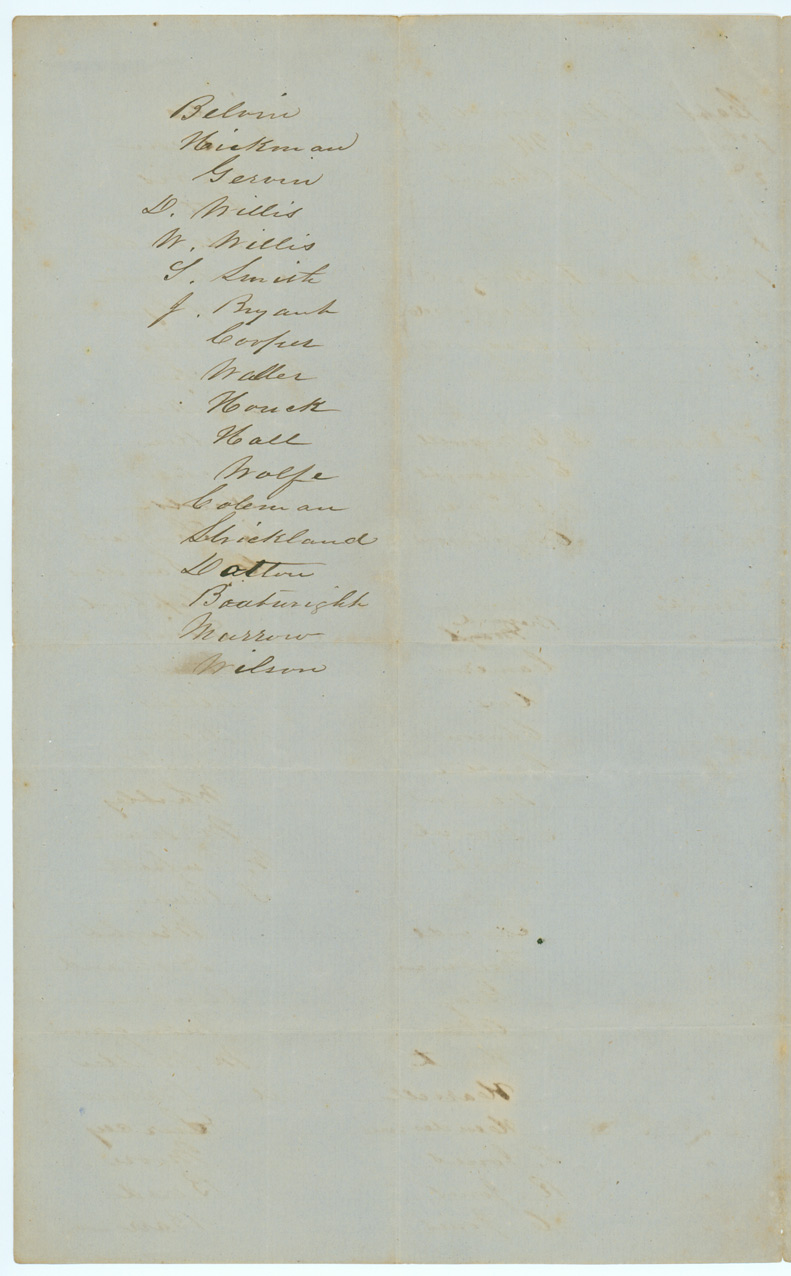 Belvin
Hickman
Gervin
D. Willis
W. Willis
S. Smith
J. Bryant
Cooper
Waller
Houck
Hall
Wolfe
Coleman
Strickland
Datton
Boatwright
Marrow
Wilson